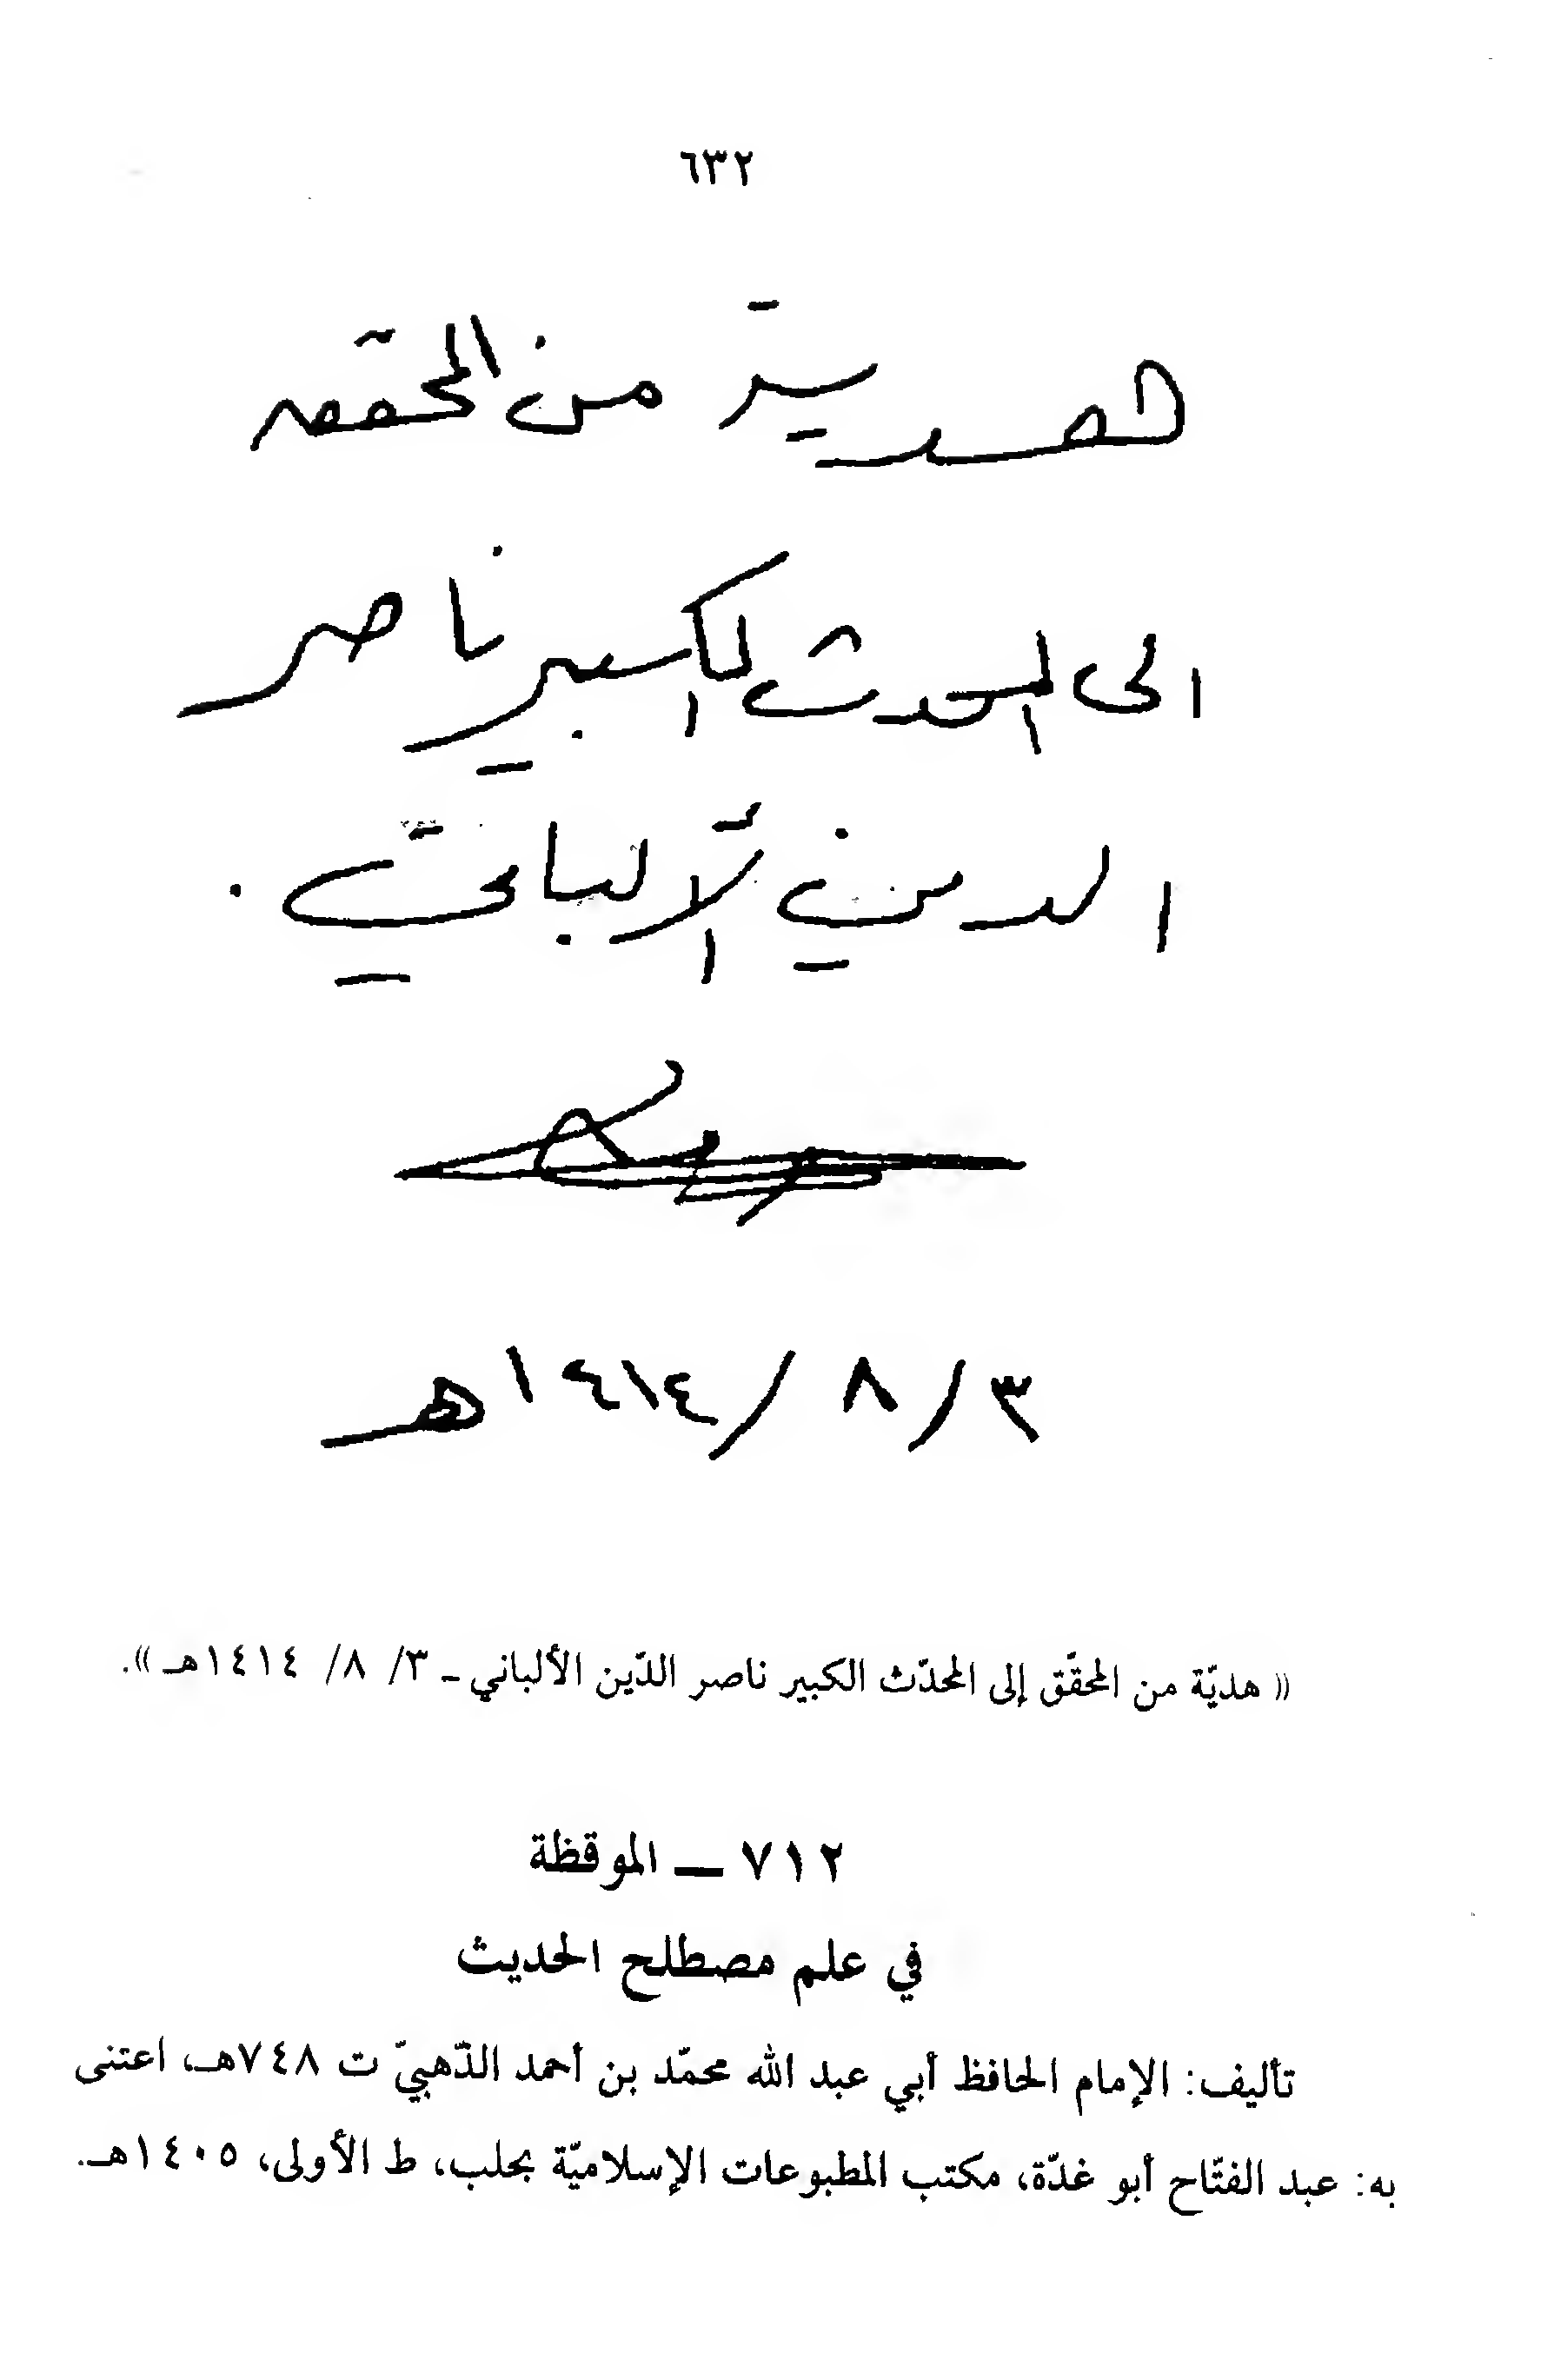 ٦٣٢
هدية من المحقق
الى المحدث الكبير ناصر
الدين الألباني .
٣/ ٨ /١٤١٤هـ
« هديّة من المحقّق إلى المحدّث الكبير ناصر الدّين الألباني ـ ٣/ ٨/ ١٤١٤هـ ».
٧١٢ ــ الموقظة
في علم مصطلح الحديث
تأليف: الإمام الحافظ أبي عبد الله محمّد بن أحمد الذّهبيّ ت ٧٤٨هـ، اعتنى
به: عبد الفتّاح أبو غدّة، مكتب المطبوعات الإسلاميّة بحلب، ط الأولى، ١٤٠٥هـ.